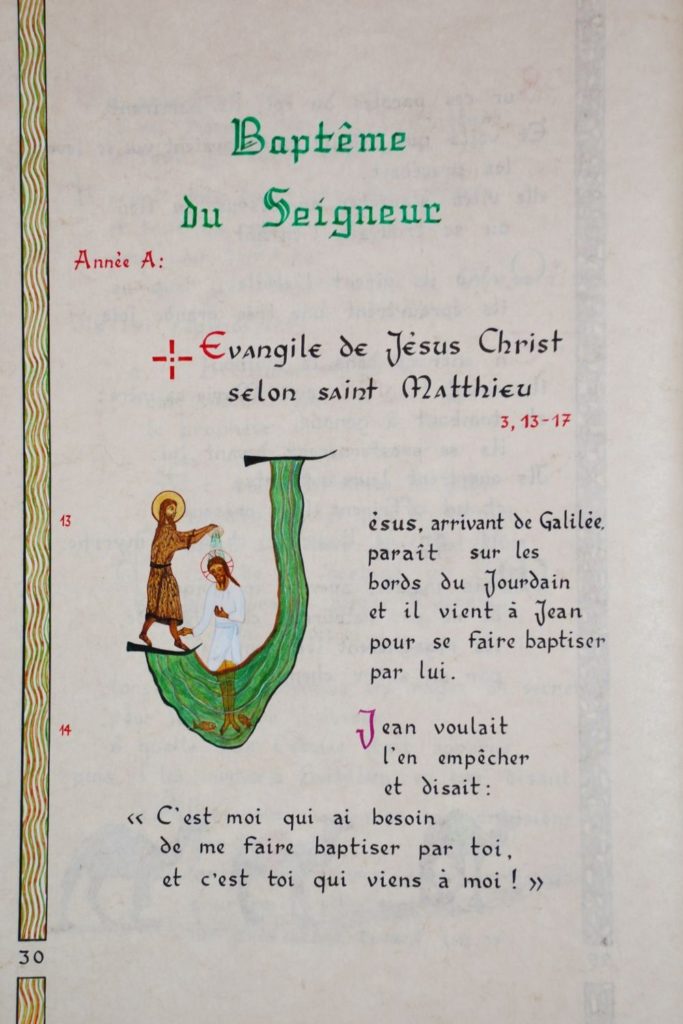 Baptême
du Seigneur
Année A:
Evangile de Jésus Christ
selon saint Matthieu
3, 13-17
13
Jésus, arrivant de Galilée,
paraît sur les
bords du Jourdain
et il vient à Jean
pour se faire baptiser
par lui.
14
Jean voulait
l'en empêcher
et disait :
« C'est moi qui ai besoin
de me faire baptiser par toi,
et c'est toi qui viens à moi ! »
30